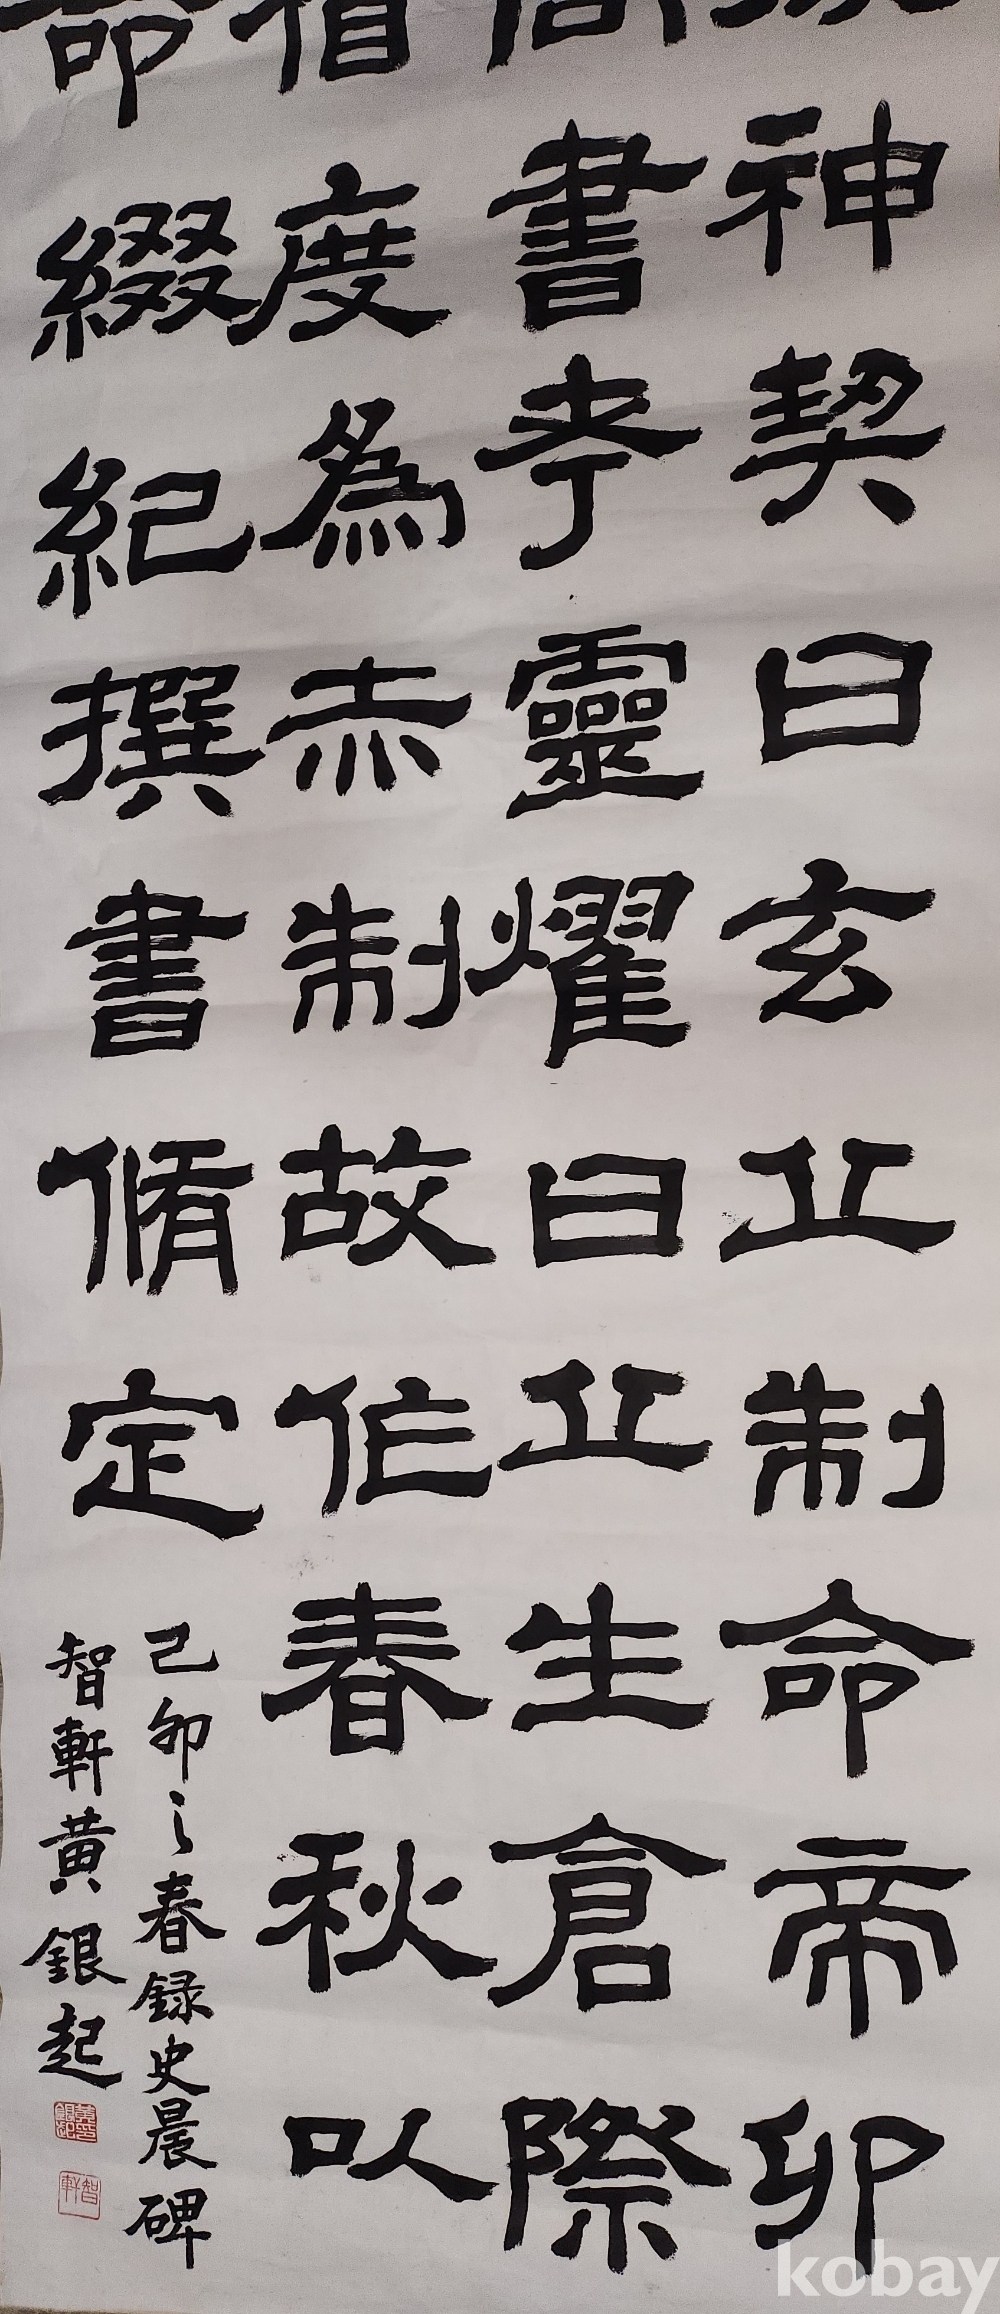 神契曰玄丘制命帝卯
書考靈耀曰丘生倉際
度為赤制故作春秋以
綴紀撰書脩定
己卯之春録史晨碑
智軒黃銀起
智軒
kobay